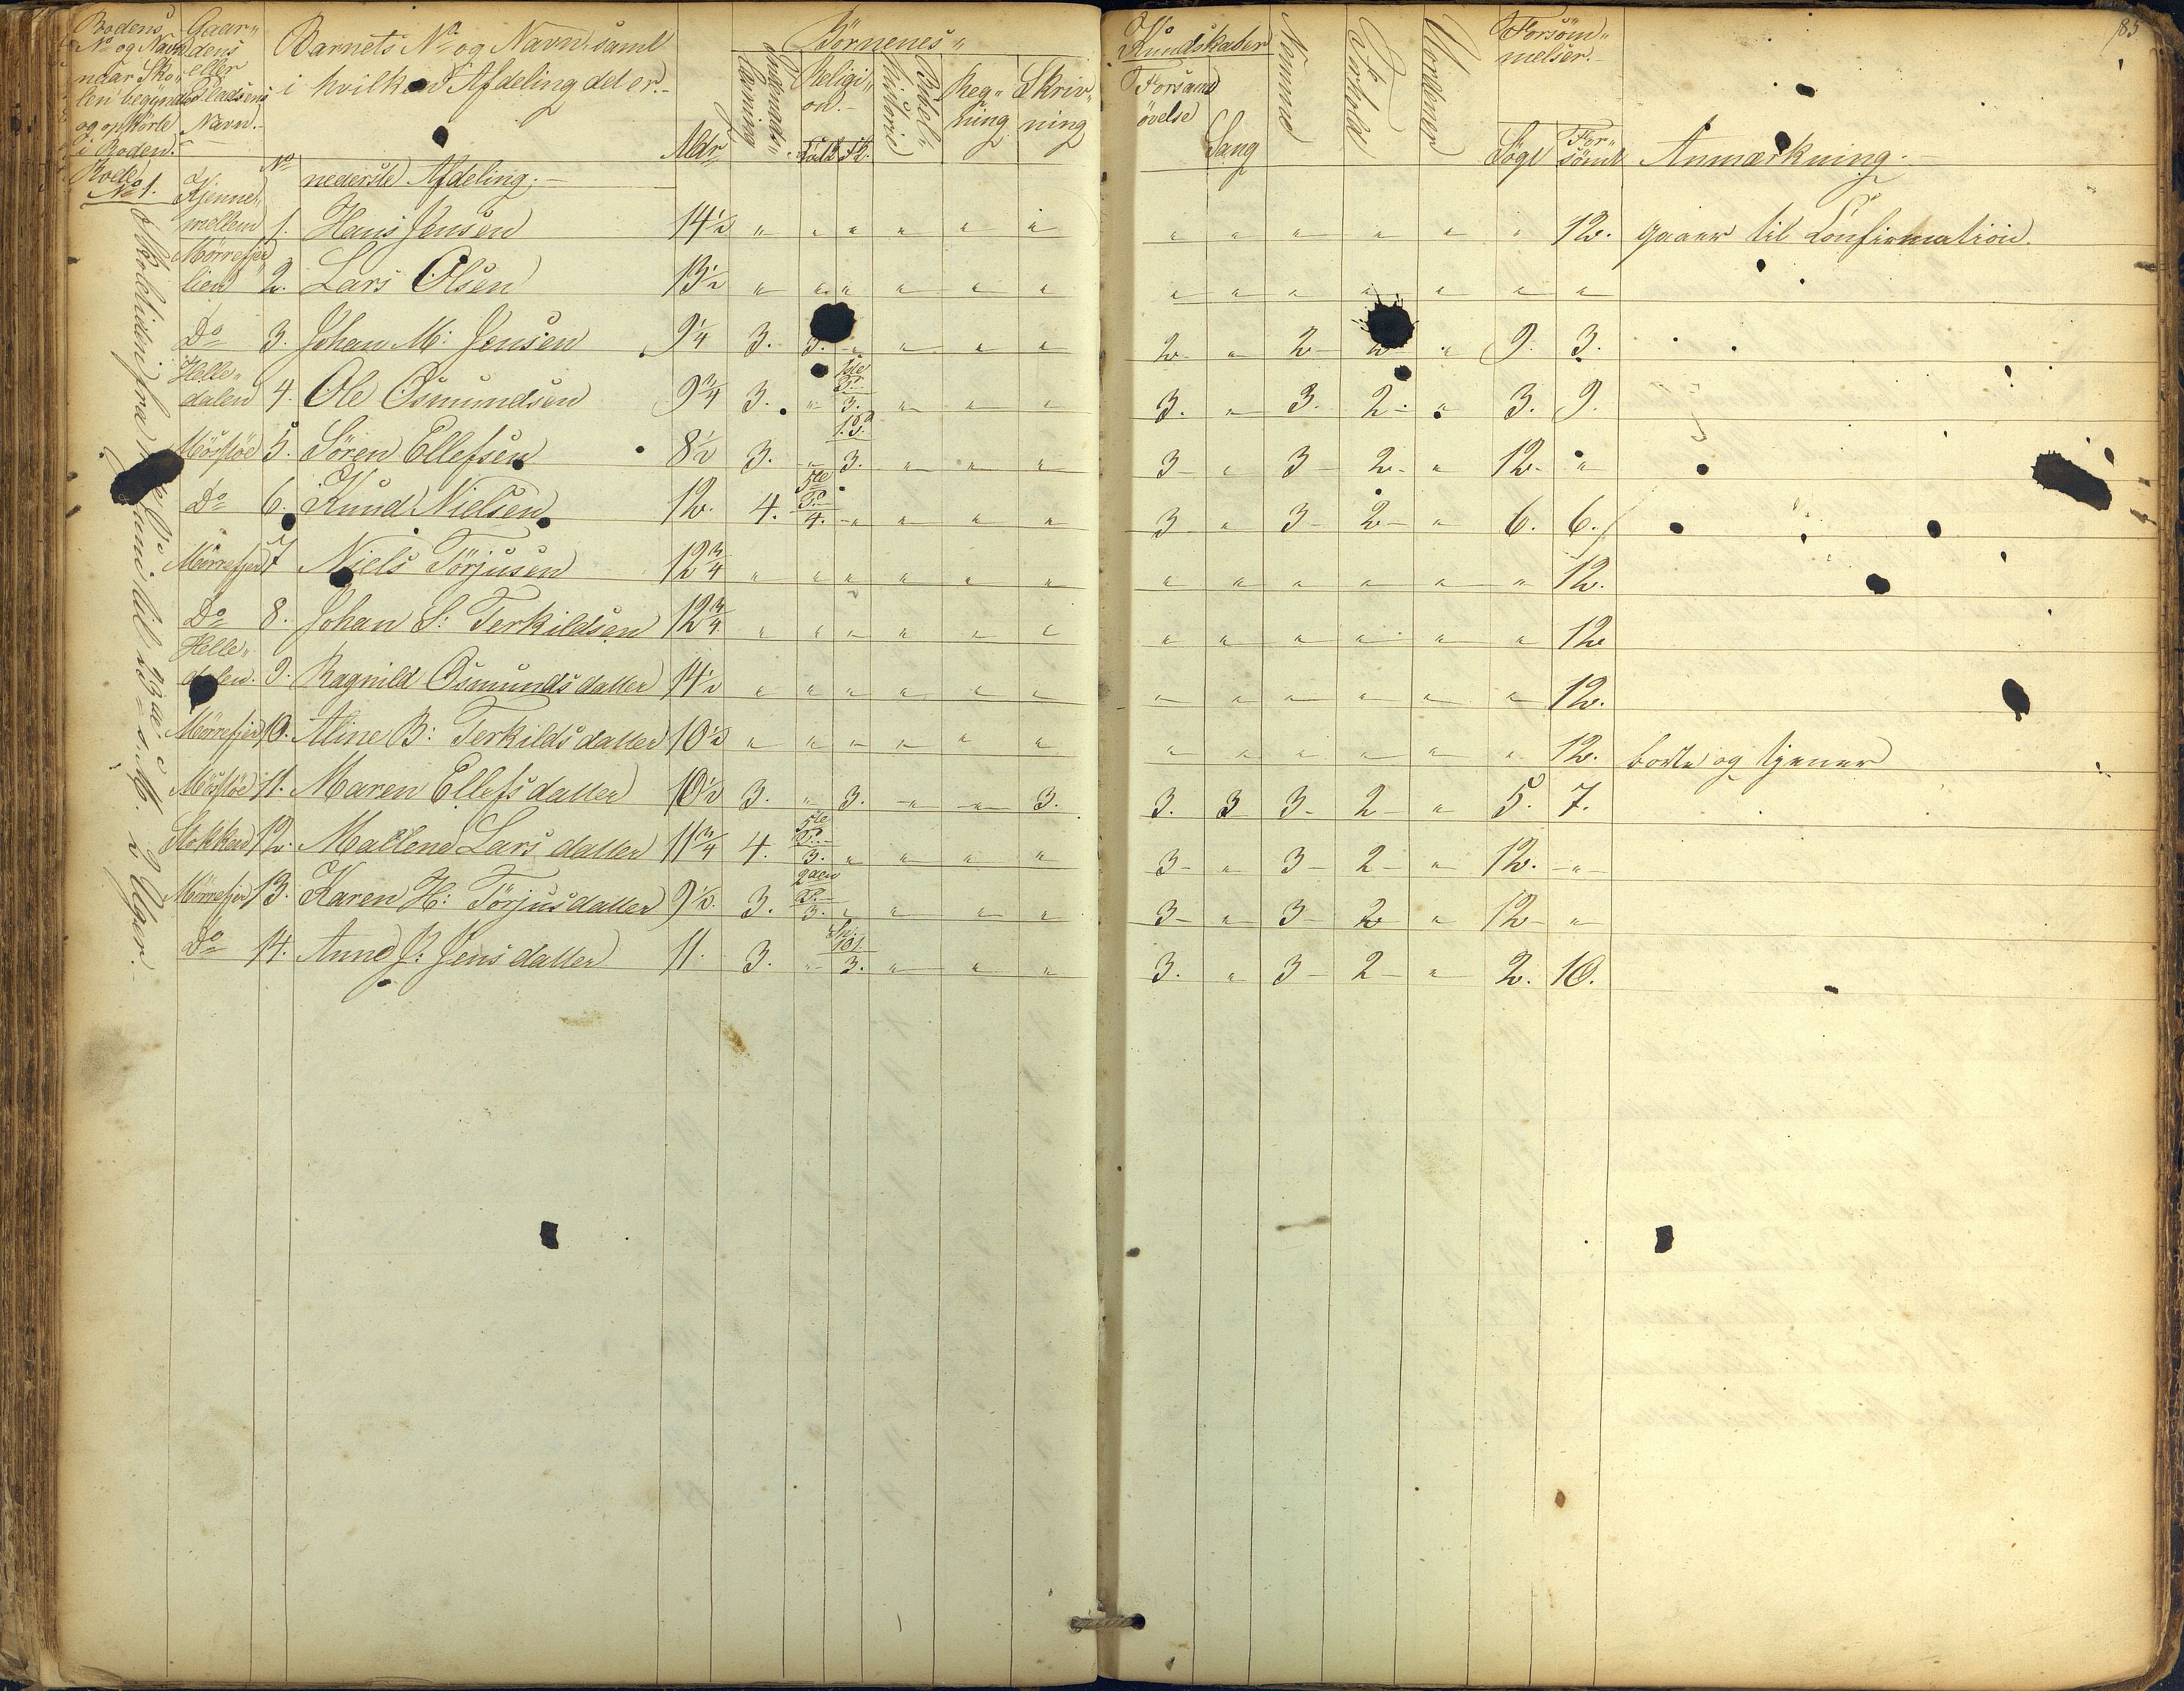 85
Rodens No og Navn naar Skolen begyndte og ophörte i Roden.
Gaardens eller Pladsens Navn.
Barnets No og Navn samt i hvilken Afdeling det er.
Alder
Börnenes
Religion.
Historie
Bibel
Regning
Skrivning
Kundskaber
Forstands övelse
Sang
Nemme
Forhold
Forsömmelser.
Sögt
Forsömt
Anmærkning.
Rode No 1.
No nederste Afdeling.
Kjennemellem 1. Hans Jensen 14½ " " " " " " " " " " " " 12. gaaer til Confirmation.
Mörrefjerlien 2. Lars Olsen 13½ " " " " " " " " " " " " "
Do 3. Johan M: Jensen 9¼ 3. 3. " " " " 2 " 2 2 " 9. 3.
Helledalen 4. Ole Osmundsen 9¾ 3. " 3. " " " 3. " 3. 2 " 3. 9.
Mörstöe 5. Sören Ellefsen 8½ 3. " 3. " " " 3 " 3 2 " 12 "
Do 6. Knud Nielsen 12. 4. 5te P. 4. " " " " 3 " 3 2 " 6. 6.
Mörrefjer 7 Niels Törjusen 12¾ " " " " " " " " " " " " 12.
Do 8. Johan S: Terkildsen 12¾ " " " " " " " " " " " " 12
Helledalen. 9. Ragnild Osmundsdatter 14½ " " " " " " " " " " " " 12.
Mörrefjer 10. Aline B: Terkildsdatter 10½ " " " " " " " " " " " " 12. borte og tjener
Mörstöe 11. Maren Ellefsdatter 10½ 3. " 3. " " 3. 3. 3 3 2 " 5. 7.
Stokken 12. Mallene Larsdatter 11¾ 4. 5te P. 3. " " " " 3 " 3 2 " 12. "
Mörrefjer 13. Karen H: Törjusdatter 9½ 3. P. 3. " " " " 3 " 3 2 " 12 "
Do 14. Anne J: Jensdatter 11. 3. " 101 3. " " " 3. " 3 2 " 2. 10.
Skoletiden fra til s. M. 2 Uger.